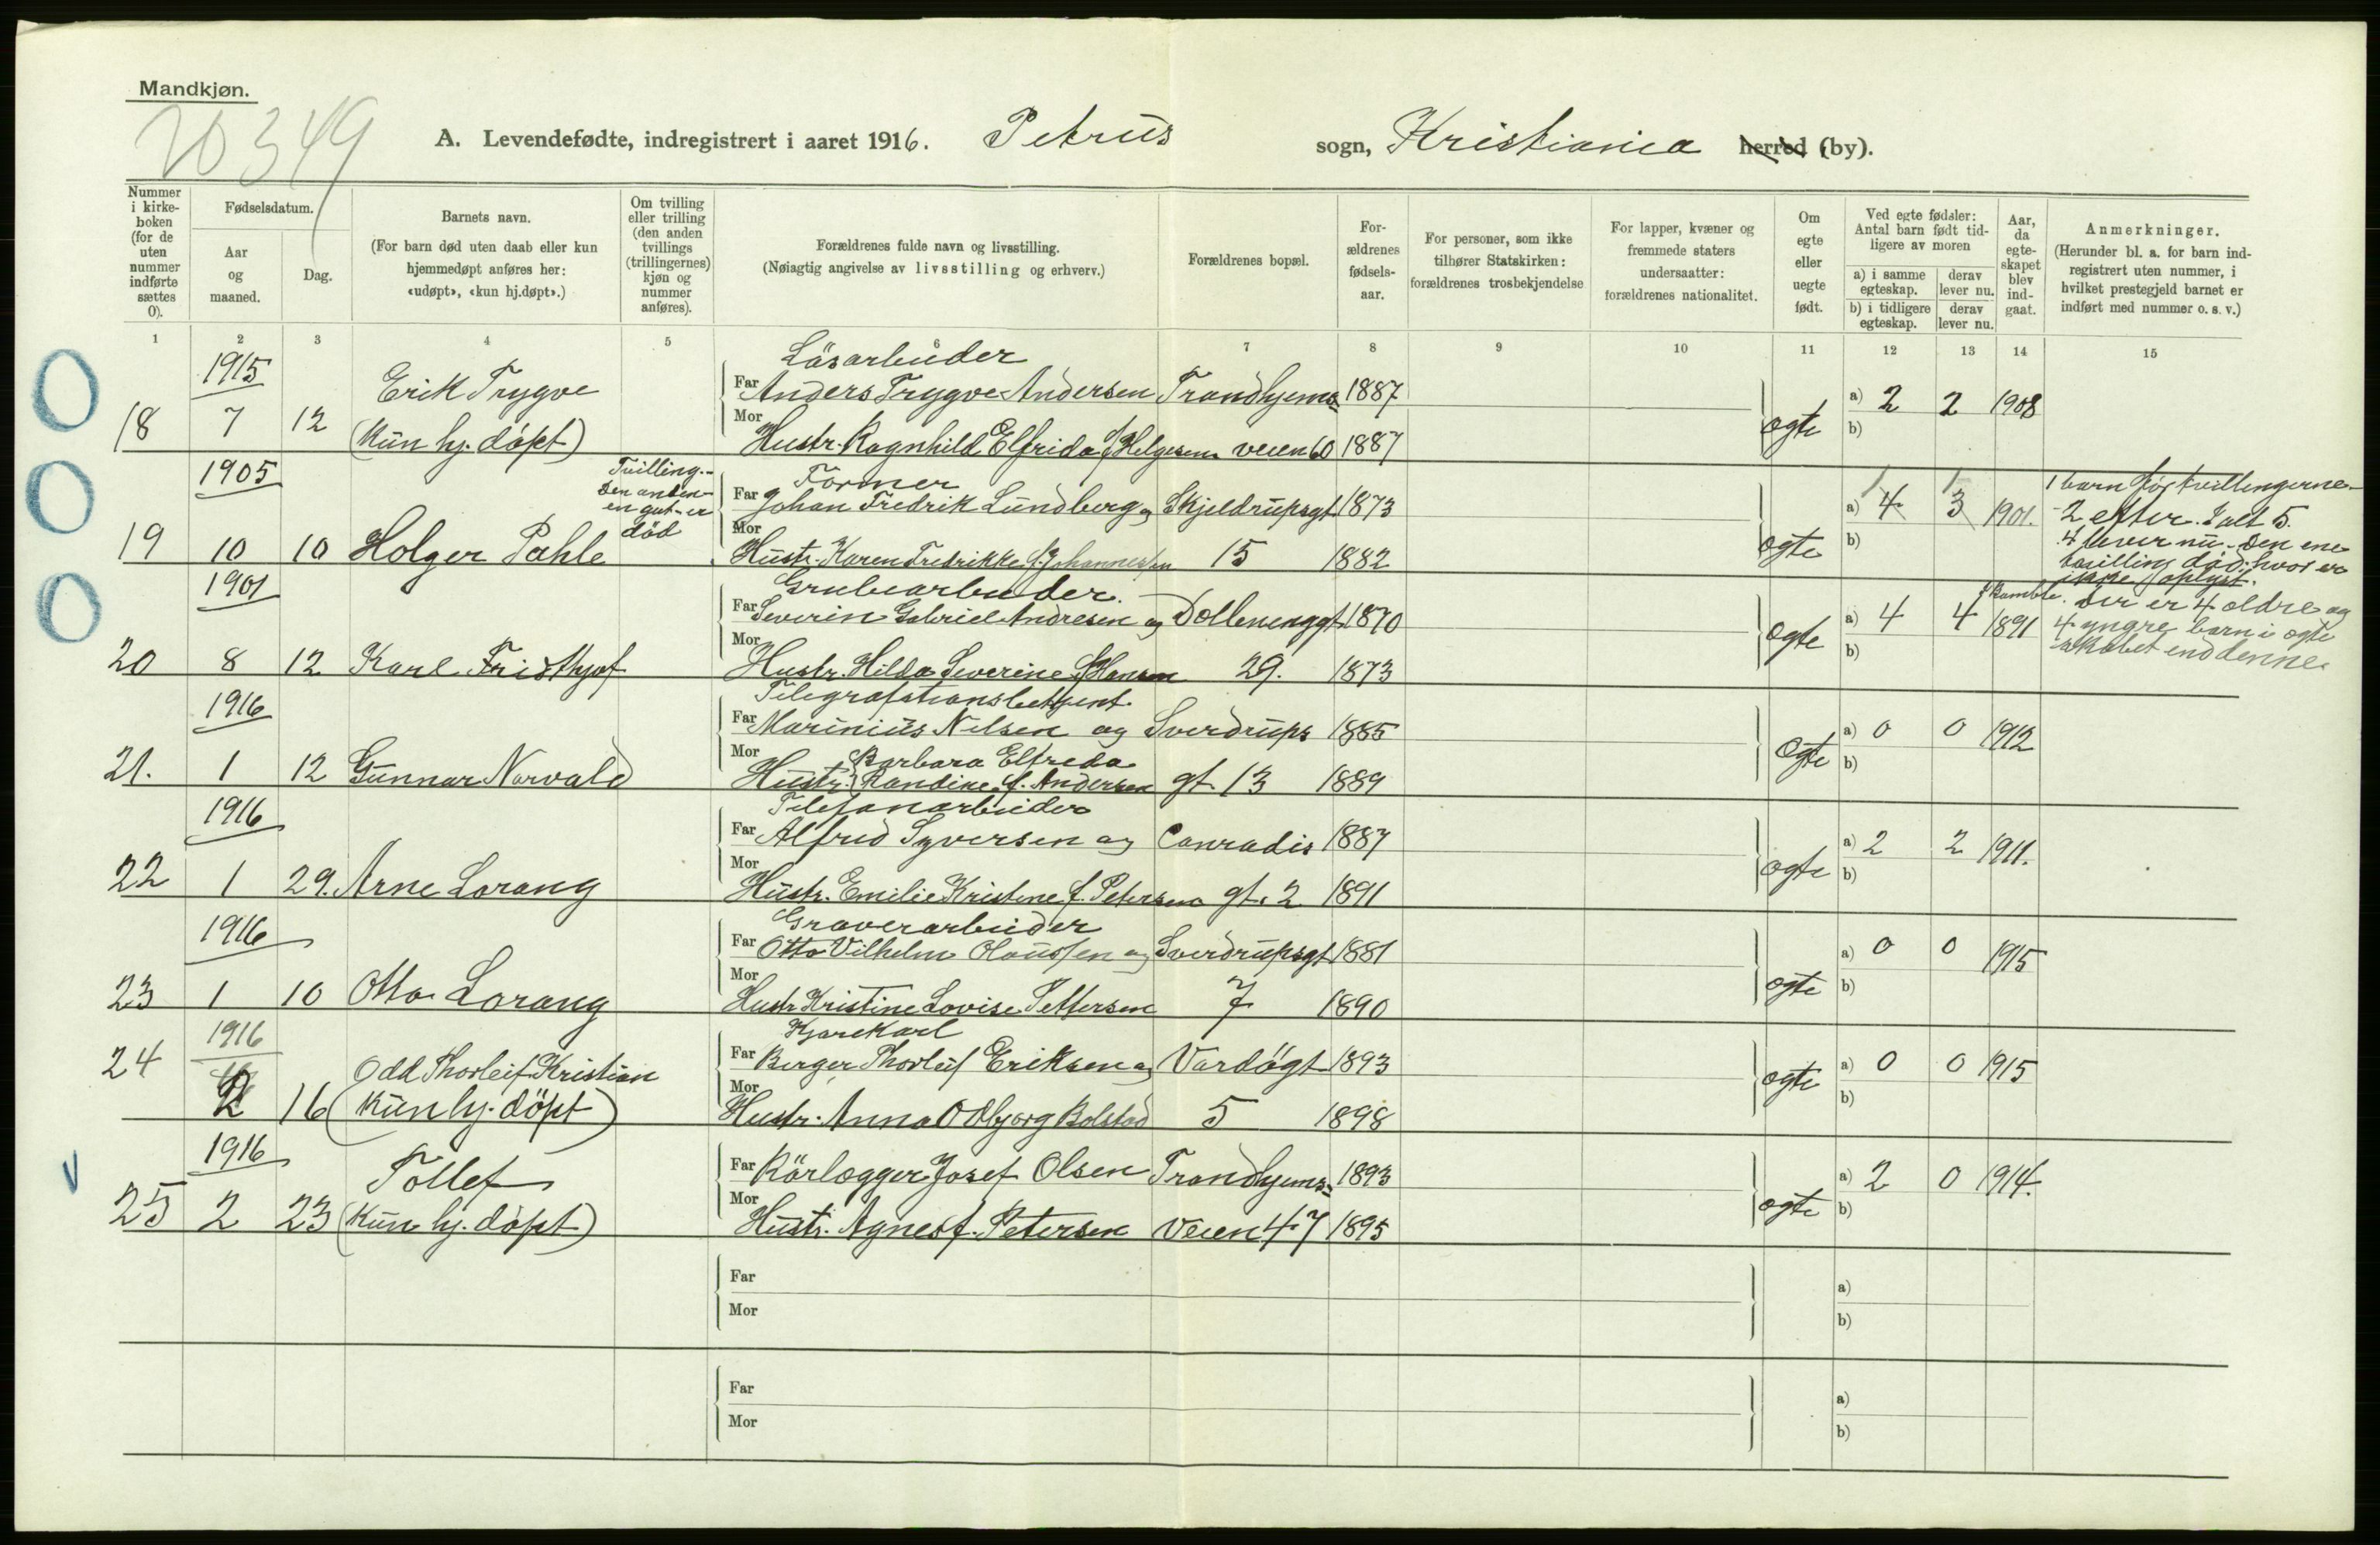 Mandkjøn.
20349
A. Levendefødte, indregistrert i aaret 1916. Petrus sogn, Kristiania herred (by).
Nummer i kirke-boken (for de uten nummer indførte sættes 0).
Fødselsdatum.
Aar og maaned.
Dag.
Barnets navn.
(For barn død uten daab eller kun hjemmedøpt anføres her: «udøpt», «kun hj.døpt».)
Om tvilling eller trilling (den anden tvillings (trillingernes) kjøn og nummer anføres).
Forældrenes fulde navn og livsstilling.
(Nøiagtig angivelse av livsstilling og erhverv.)
Forældrenes bopæl.
For-ældrenes fødsels-aar.
For personer, som ikke tilhører Statskirken: forældrenes trosbekjendelse
For lapper, kvæner og fremmede staters undersaatter: forældrenes nationalitet.
Om egte eller uegte født.
Ved egte fødsler: Antal barn født tid-ligere av moren
a) i samme egteskap.
derav lever nu.
b) i tidligere egteskap.
derav lever nu.
Aar, da egte-skapet blev ind-gaat.
Anmerkninger.
(Herunder bl. a. for barn ind-registrert uten nummer, i hvilket prestegjeld barnet er indført med nummer o. s. v.)
1 2 3 4 5 7 8 9 10 11 12 13 14 15
1915 Løsarbeider
Erik Trygve Far Anders Trygve Andersen Trondhjems- 1887 a) 2 2 1908
18 7 12 (Kun hj. døpt) Mor Hustr. Ragnhild Elfrida f. Helgesen veien 60 1887 egte b)
1905 Tvilling.- Den anden- en gut- er død
Former 1 barn før tvillingerne-
Far Johan Fredrik Lundberg og Skjeldrupsgt. 1873 a) 4 3 1901. 2 efter. I alt 5.
19 10 10 Holger Pahle Mor Hustr. Karen Fredrikke f. Johannessen 15 1882 egte b) 4 lever nu. Den ene
tvilling død: hvor er
ikke oplyst.
1901 Grubearbeider.
Far Severin Gabriel Andresen og Dollenenggt. 1870 a) 4 4 1891 Der er 4 ældre og
4 yngre barn i egte
skabet end denne.
20 8 12 Karl Fristhjof Mor Hustr. Hilda Severine f. Hansen 29. 1873 egte b)
1916 Telegrafstationsbetjent.
Far Marinius Nilsen og Sverdrups 1885 a) 0 0 1912
Barbara Elfreda
21. 1 12 Gunnar Norvald Mor Hustr. Randine f. Andersen gt. 13 1889 egte b)
1916 Telefonarbeider
Far Alfred Syversen og Conradis 1887 a) 2 2 1911.
22 1 29. Arne Lorang Mor Hustr. Emilie Kristine f. Petersen gt. 2 1891 egte b)
1916 Graverarbeider
Far Otto Vilhelm Olaussen og Sverdrupsgt 1881 a) 0 0 1915
23 1 10 Otto Lorang Mor Hustr Kristine Lovise Pettersen 7 1890 egte b)
1916 Kjørekarl
24 Odd Thorleif Kristian Far Birger Thorleif Eriksen og Vardøgt 1893 a) 0 0 1915
2 16 (Kun hj. døpt) Mor Hustr. Anna Odbjørg Bolstad 5 1898 egte b)
1916 Tollef Far Rørlægger Josef Olsen Trondhjems- 1893 a) 2 0 1914.
25 2 23 (Kun hj. døpt) Mor Hustr. Agnes f. Petersen veien 47 1895 egte b)
Far a)
Mor b)
Far a)
Mor b)